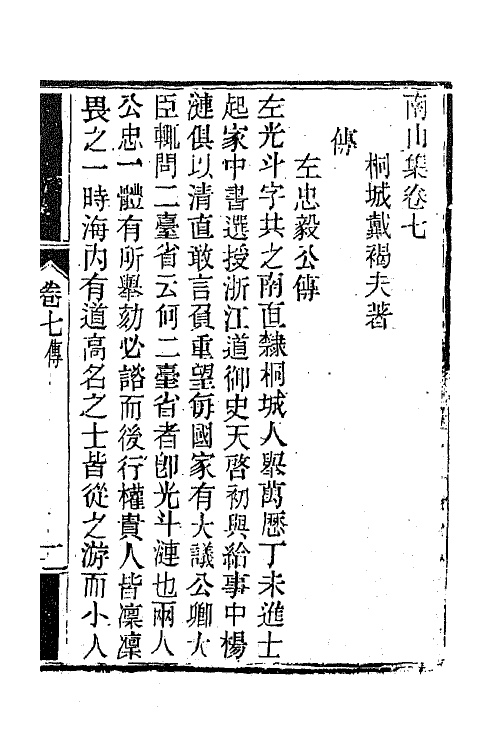 南山集卷七
桐城戴褐夫著
傳
左忠毅公傳
左光斗字共之南直隸桐城人舉萬曆丁未進士
起家中書選授浙江道御史天啓初與給事中楊
漣俱以清直敢言負重望每國家有大議公卿大
臣輒問二臺省云何二臺省者即光斗漣也兩人
公忠一體有所舉劾必諮而後行權貴人皆凜凜
畏之一時海內有道高名之士皆從之游而小人
卷七傳
一